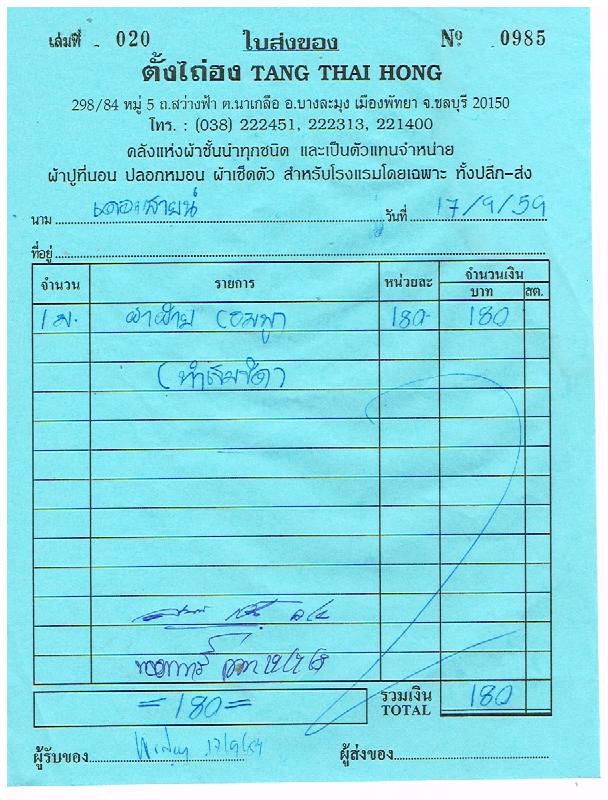 เล่มที่ 020 ใบส่งของ Nº 0985
ตั้งไถ่ฮง TANG THAI HONG
298/84 หมู่ 5 ถ.สว่างฟ้า ต.นาเกลือ อ.บางละมุง เมืองพัทยา จ.ชลบุรี 20150
โทร. : (038) 222451, 222313, 221400
คลังแห่งผ้าชั้นนำทุกชนิด และเป็นตัวแทนจำหน่าย
ผ้าปูที่นอน ปลอกหมอน ผ้าเช็ดตัว สำหรับโรงแรมโดยเฉพาะ ทั้งปลีก-ส่ง
นาม เดอะสายน์ วันที่ 17/9/59
ที่อยู่
จำนวน รายการ หน่วยละ จำนวนเงิน
บาท สต.
1 ม. ผ้าฝ้าย (ชมพู) 180- 180
=180= รวมเงิน 180
TOTAL
ผู้รับของ 17/9/59 ผู้ส่งของ